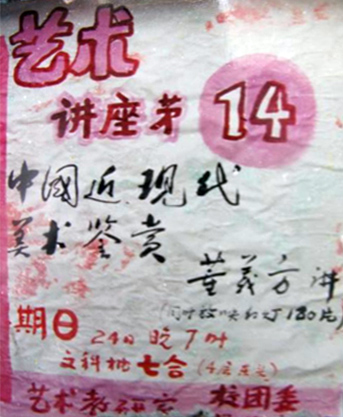 艺术
讲座第14
中國近现代
美术鉴赏
董義方讲
(同时放映幻灯180片)
期日 24日晚7时
文科楼七合
艺术教研室 校团委